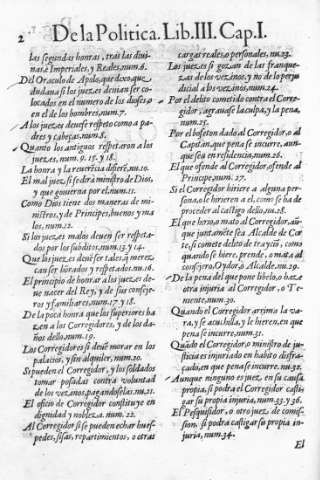 2 De la Politica. Lib. III. Cap. I.
las segundas honras, tras las divinas,
e Imperiales, y Reales, num. 6.
Del Oraculo de Apolo, que dixo, que
dudava si los juezes devian ser colocados
en el numero de los dioses, o
en el de los hombres, num. 7.
A los juezes deuese respeto como a padres
y cabeças, num. 8.
Quanto los antiguos respetaron a los
juezes, num. 9. 15. y 18.
La honra y la reverēcia difierē, nu. 10.
El mal juez, si se dirà ministro de Dios,
y que govierna por el, num. 11.
Como Dios tiene dos maneras de ministros,
y de Principes, buenos y malos,
num. 12.
Si los juezes malos deven ser respetados
por los subditos, num. 13. y 14.
Que los juezes devē ser tales, q̄ merezcan
ser hōrados y respetados, nu. 16.
El principio de honrar a los juezes deue
nacer del Rey, y de sus consejeros
y familiares, num. 17. y 18.
De la poca honra que los superiores hazen
a los Corregidores, y de los daños
dello, num. 19.
Los Corregidores si devē morar en los
palacios, y sin alquiler, num. 20.
Si pueden el Corregidor, y los soldados
tomar posadas contra voluntad
de los vezinos, pagandoselas, nu. 21.
El oficio de Corregidor constituye en
dignidad y nobleza. num. 22.
Al Corregidor si se pueden echar huespedes,
sisas, repartimientos, o otras
cargas reales, o personales, nu. 23.
Los juezes si gozan de las franquezas
de los vezinos, y no de lo perjudicial
a los vezinos, num. 24.
Por el delito cometido contra el Corregidor,
agravase la culpa, y la pena,
num. 25.
Por el bofeton dado al Corregidor, o al
Capitan, que pena se incurre, aunque
sea en residencia, num. 26.
El que ofende al Corregidor, ofende al
Principe, num. 27.
Si el Corregidor hiriere a alguna persona,
o le hirieren a el, como se ha de
proceder al castigo dello, nu. 28.
El que hiere, o mata al Corregidor, aūque
juntamēte sea Alcalde de Corte,
si comete delito de trayciō, como
quando se hiere, prende, o mata al
consejero. Oydor, o Alcalde. nu. 29.
De la pena del que pone libelo, o haze
otra injuria al Corregidor, o Teniente,
num. 30.
Quando el Corregidor arrima la vara,
y se acuchilla, y le hieren, en que
pena se incurre, num. 31.
Quādo el Corregidor, o ministro de justicia
es injuriado en habito disfraçado,
en que pena se incurre. nu. 32.
Aunque ninguno es juez, en su causa
propia, si podrà el Corregidor castigar
su propia injuria, num. 33. y 36.
El Pesquisidor, o otro juez de comission,
si podrà castigar su propia injuria,
num. 34.
El